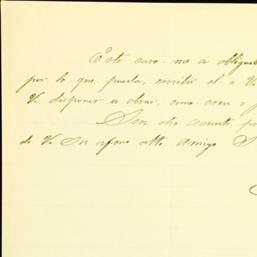 Este caso me a obligado
por lo que pueda, escribir el a V.
V. disponer u obrar, como crea
Sin otro asunto
de V. Su afmo atto. Amigo S